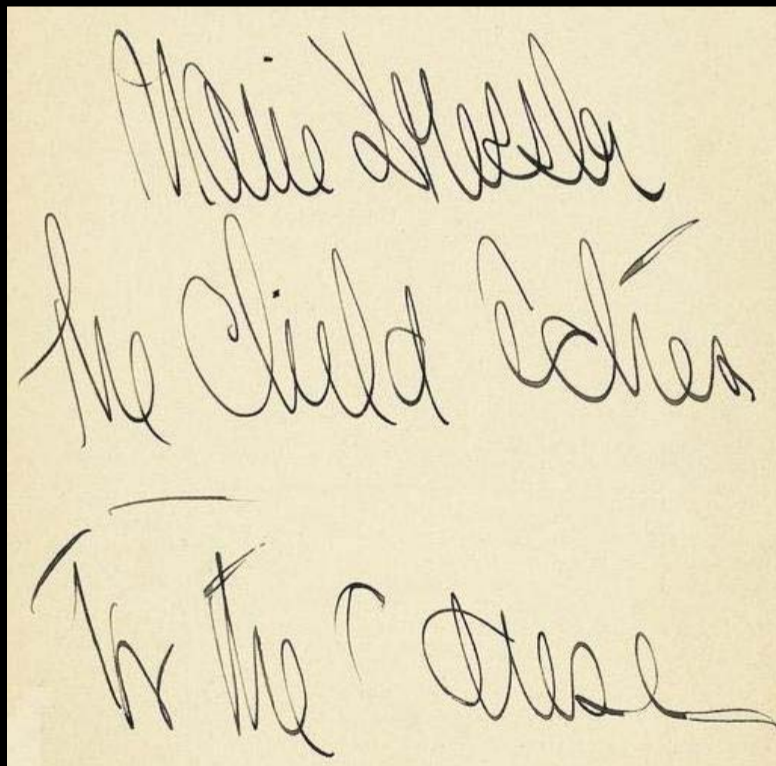 Marie Dressler
The Child Actress
For the Cause